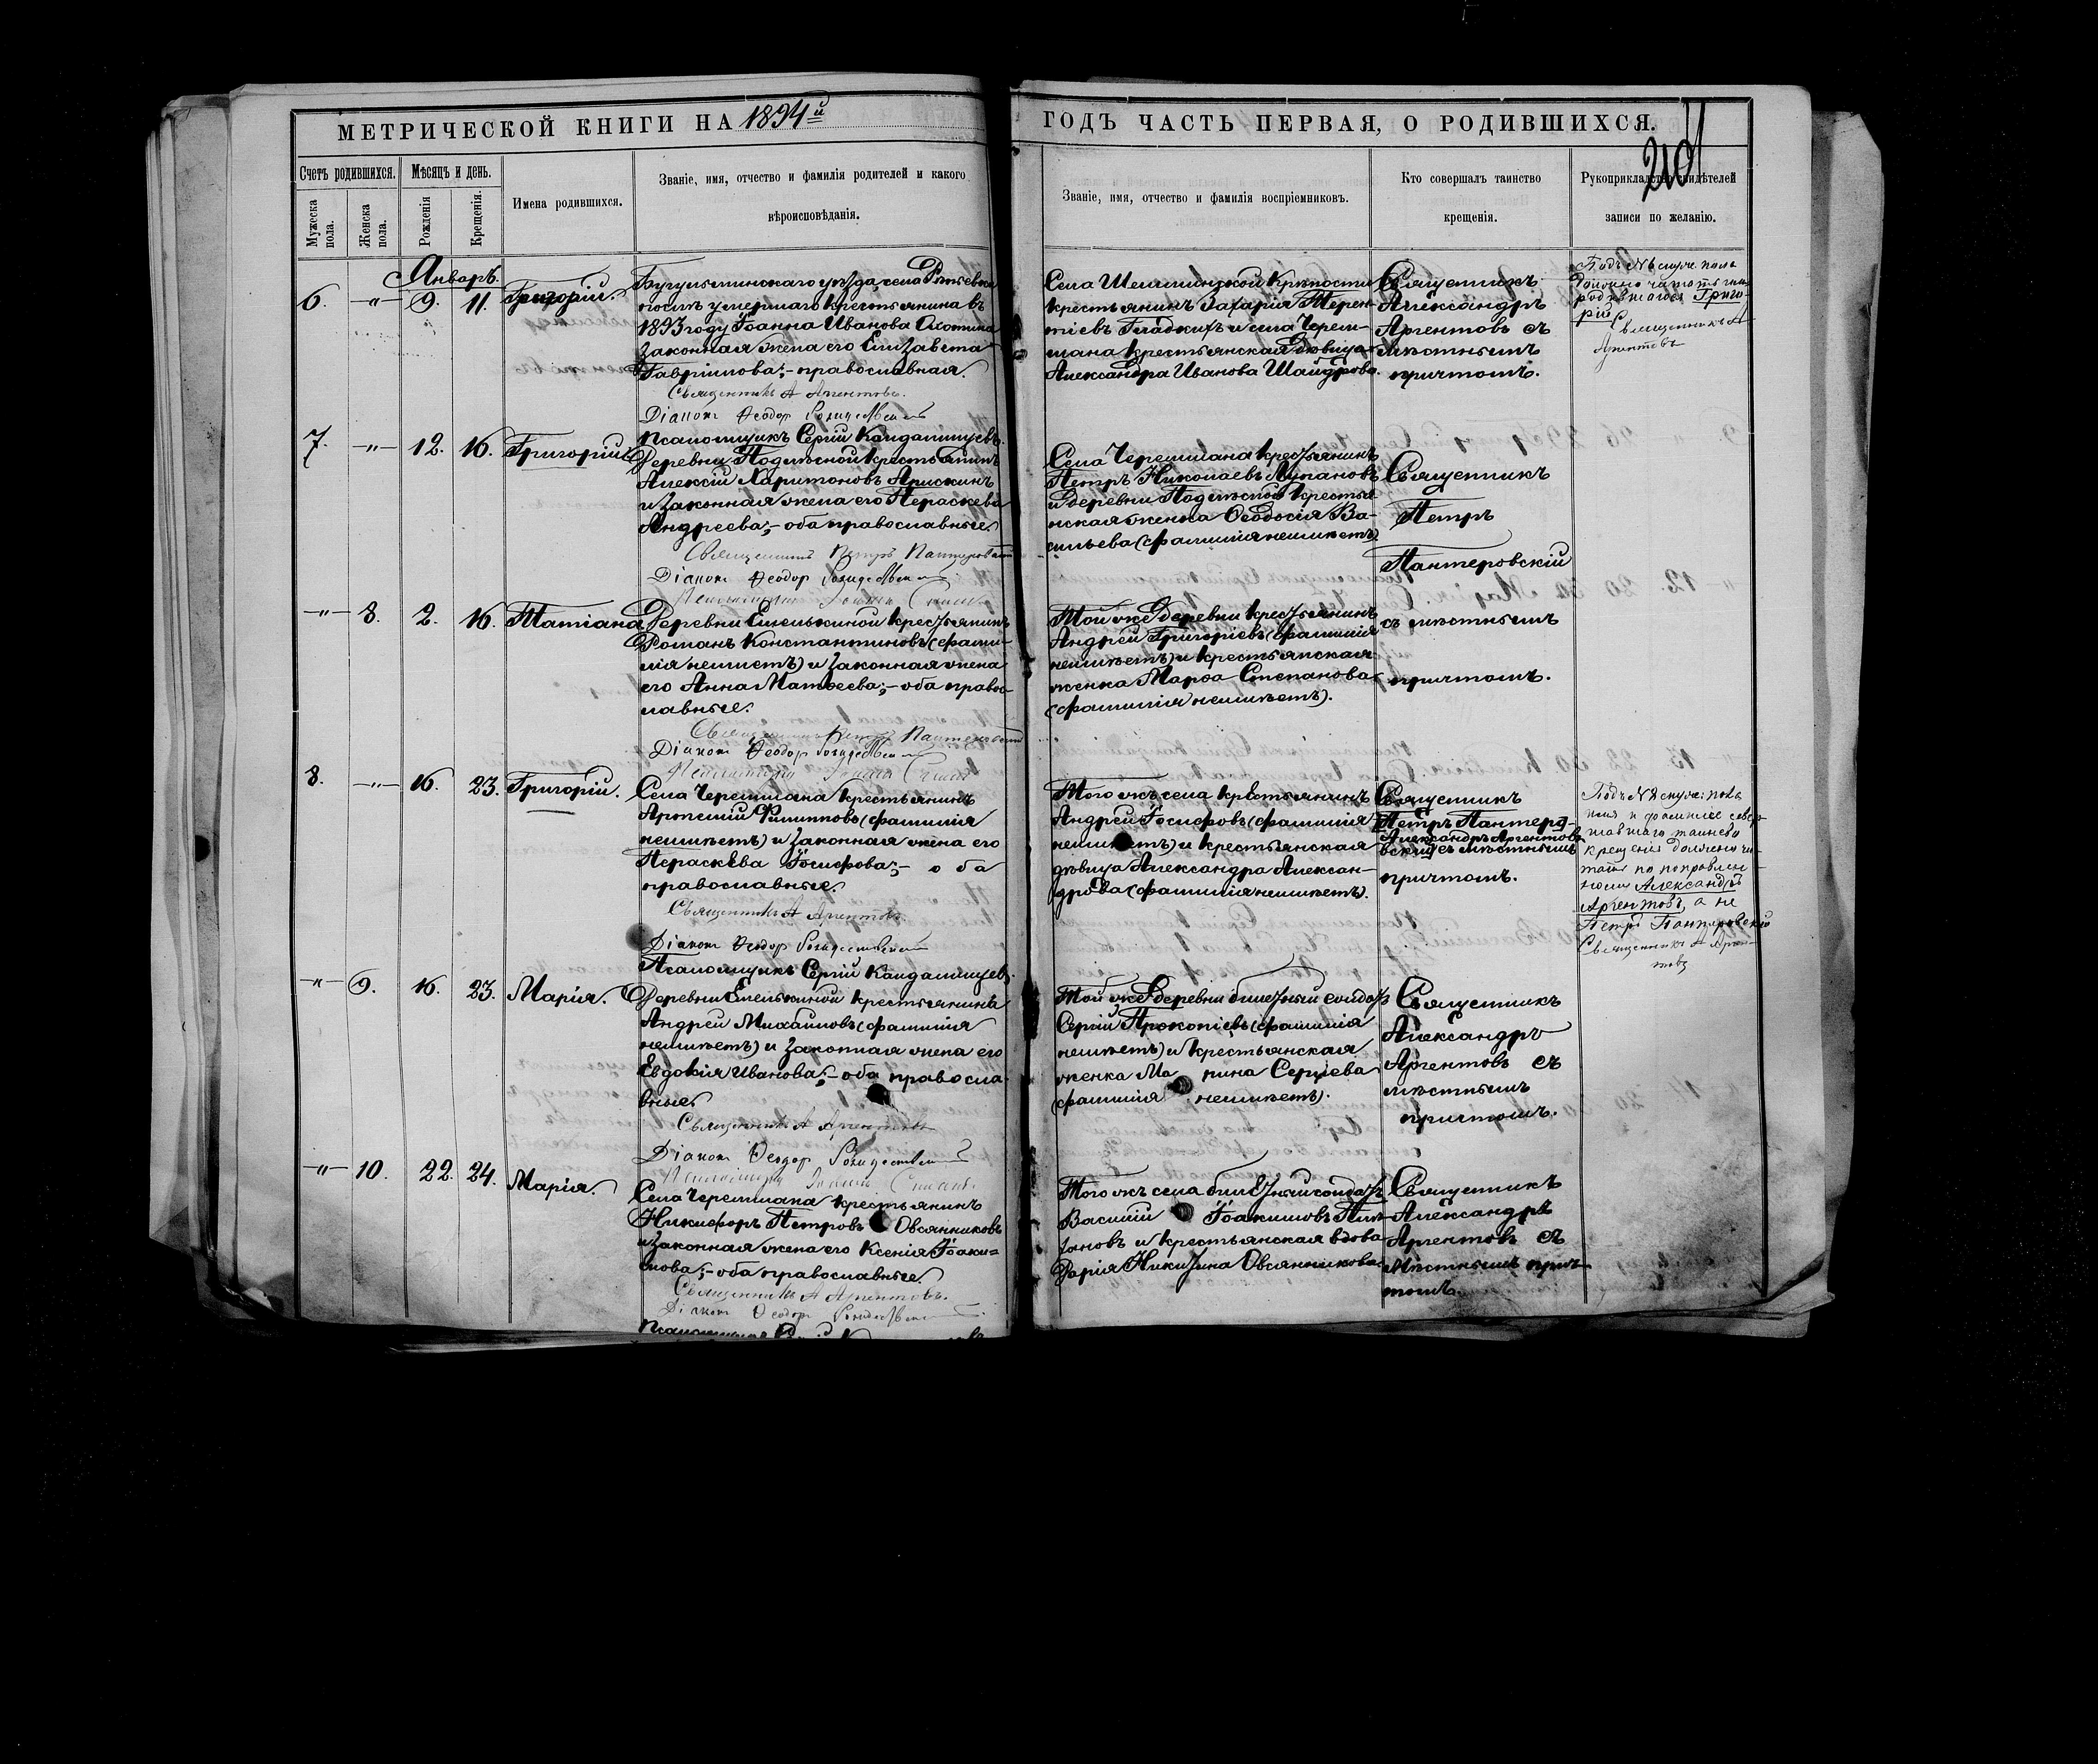 МЕТРИЧЕСКОЙ КНИГИ НА 1894й
ГОДЪ ЧАСТЬ ПЕРВАЯ, О РОДИВШИХСЯ.
210
Счетъ родившихся.
Мужеска пола.
Женска пола.
Мѣсяцъ и день.
Рожденія
Крещенія.
Имена родившихся.
Званіе, имя, отчество и фамилія родителей и какого
вѣроисповѣданія.
Званіе, имя, отчество и фамилія воспріемниковъ.
Кто совершалъ таинство
крещенія.
Рукоприкладство свидѣтелей
записи по желанію.
Январь.
6. —"— 9. 11. Григорій.
Бугульминскаго уѣзда, села
послѣ умершаго крестьянина въ
1893 году Іоанна Иванова
законная жена его Елизавета
Гавріилова; - православная.
Священникъ А Аргентовъ.
Діаконъ Ѳеодоръ Рождественскій
Псаломщикъ Сергій Кандалинцевъ.
Села Шешминской Крѣпости
крестьянинъ Захарія Терен-
тіевъ Гладкихъ и села Черем-
шана крестьянская дѣвица
Александра Иванова Шайдрова.
Священникъ
Александръ
Аргентовъ съ
мѣстнымъ
причтомъ.
Подъ №6 муж. пола
должно читать имя
родившагося Григо-
рій
Священникъ А
Аргентовъ
7. —"— 12. 16. Григорій.
Деревни Подлѣсной крестьянинъ
Алексій Харитоновъ Арискинъ
и законная жена его Параскева
Андреева; - оба православные.
Священникъ Петръ Пантеровскій
Діаконъ Ѳеодоръ Рождественскій
Псаломщикъ
Села Черемшана крестьянинъ
Петръ Николаевъ Лупановъ
и деревни Подлѣсной крестья-
нская женка Ѳеодосія Ва-
сильева (фамилія неимѣетъ)
Священникъ
Петръ
Пантеровскій
съ мѣстнымъ
причтомъ.
—"— 8. 2. 16. Татіана
Деревни Емелькиной крестьянинъ
Романъ Константиновъ (фами-
лія неимѣетъ) и законная жена
его Анна Матвеева; - оба право-
славные.
Священникъ Петръ Пантеровскій
Діаконъ Ѳеодоръ Рождественскій
Псаломщикъ
Той же деревни крестьянинъ
Андрей Григоріевъ (фамилія
неимѣетъ) и крестьянская
женка Марѳа Степанова
(фамилія неимѣетъ).
8. —"— 16. 23. Григорій.
Села Черемшана крестьянинъ
Артемій Филипповъ (фамилія
неимѣетъ) и законная жена его
Параскева Іосифова; - оба
православные.
Священникъ А Аргентовъ
Діаконъ Ѳеодоръ Рождественскій
Псаломщикъ Сергій Кандалинцевъ.
Того жъ села крестьянинъ
Андрей Іосифовъ (фамилія
неимѣетъ) и крестьянская
дѣвица Александра Алексан-
дрова (фамилія неимѣетъ).
Священникъ
Петръ Пантеро-
Александръ Аргентовъ
вскій съ мѣстнымъ
причтомъ.
Подъ №8 муж: пола
имя и фамилія совер-
шавшаго таинство
крещенія должно чи-
тать по поправлен-
ному Александръ
Аргентовъ, а не
Петръ Пантеровскій
Священникъ А Арген-
товъ
—"— 9. 16. 23. Марія.
Деревни Емелькиной крестьянинъ
Андрей Михайловъ (фамилія
неимѣетъ) и законная жена его
Евдокія Иванова; - оба правосла-
вные.
Священникъ А Аргентовъ
Діаконъ Ѳеодоръ Рождественскій
Псаломщикъ
Той же деревни билетный солдатъ
Сергій Прокопіевъ (фамилія
неимѣетъ) и крестьянская
женка Сергіева
(фамилія неимѣетъ).
Священникъ
Александръ
Аргентовъ съ
мѣстнымъ
причтомъ.
—"— 10. 22. 24. Марія.
Села Черемшана крестьянинъ
Никифоръ Петровъ Овсянниковъ
и законная жена его Ксенія Іоаки-
мова; - оба православные.
Священникъ А Аргентовъ.
Діаконъ Ѳеодоръ Рождественскій
Того жъ села билетный солдатъ
Василій Іоакимовъ
и крестьянская вдова
Дарія Никитина Овсянникова
Священникъ
Александръ
Аргентовъ съ
мѣстнымъ прич-
томъ.